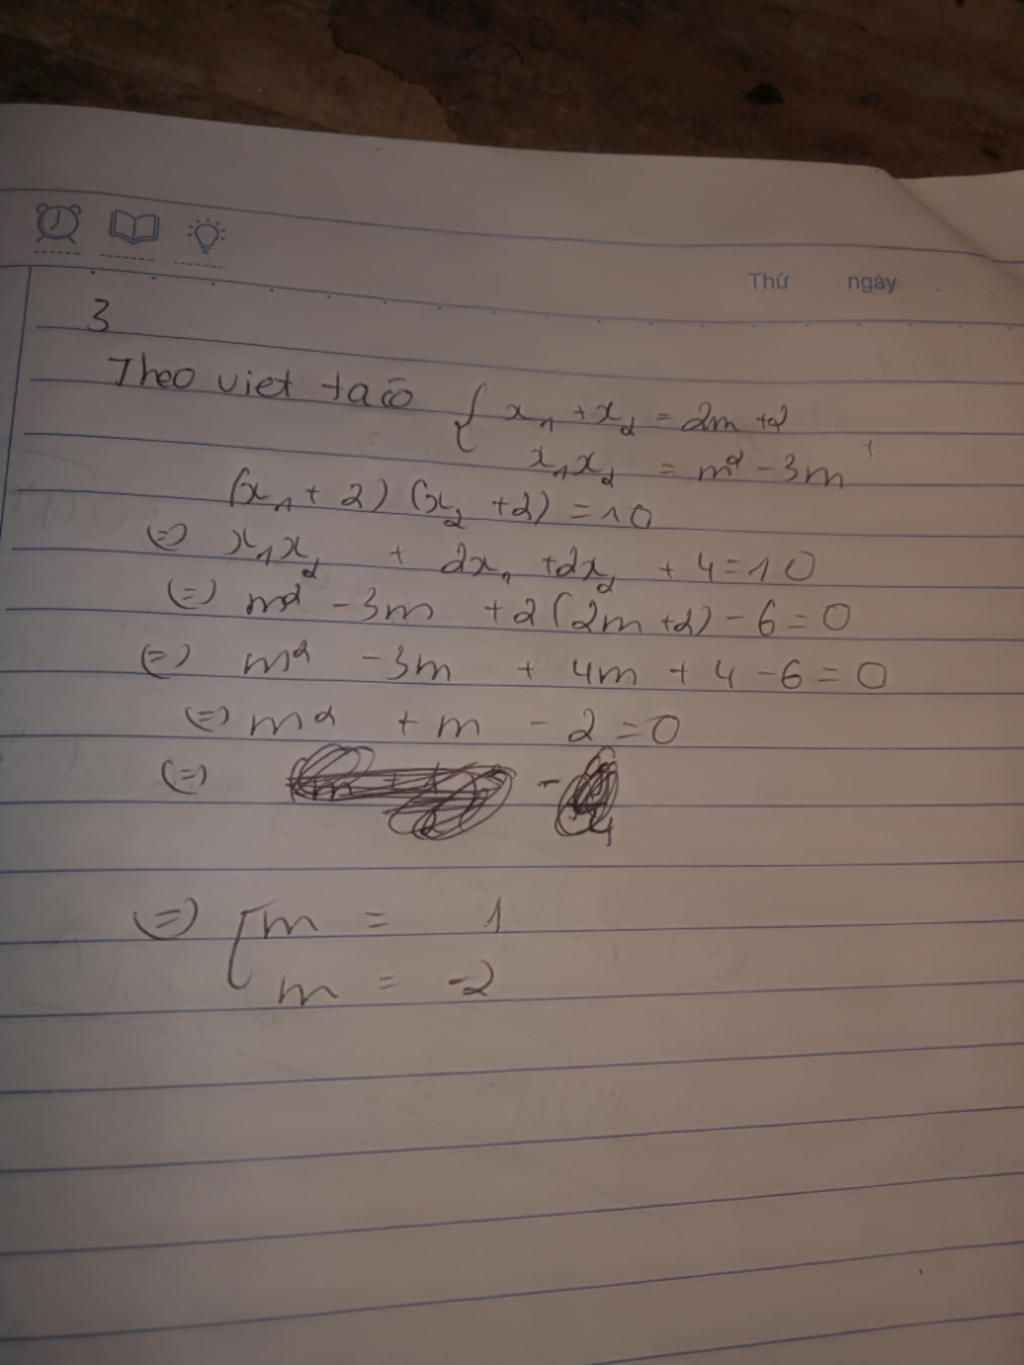 Thứ ngày
3
Theo viet ta có { x₁ + x₂ = 2m + 2
x₁x₂ = m² - 3m
(x₁ + 2) (x₂ + 2) = 10
(=) x₁x₂ + 2x₁ + 2x₂ + 4 = 10
(=) m² - 3m + 2(2m + 2) - 6 = 0
(=) m² - 3m + 4m + 4 - 6 = 0
(=) m² + m - 2 = 0
(=) -
(=) [ m = 1
m = -2